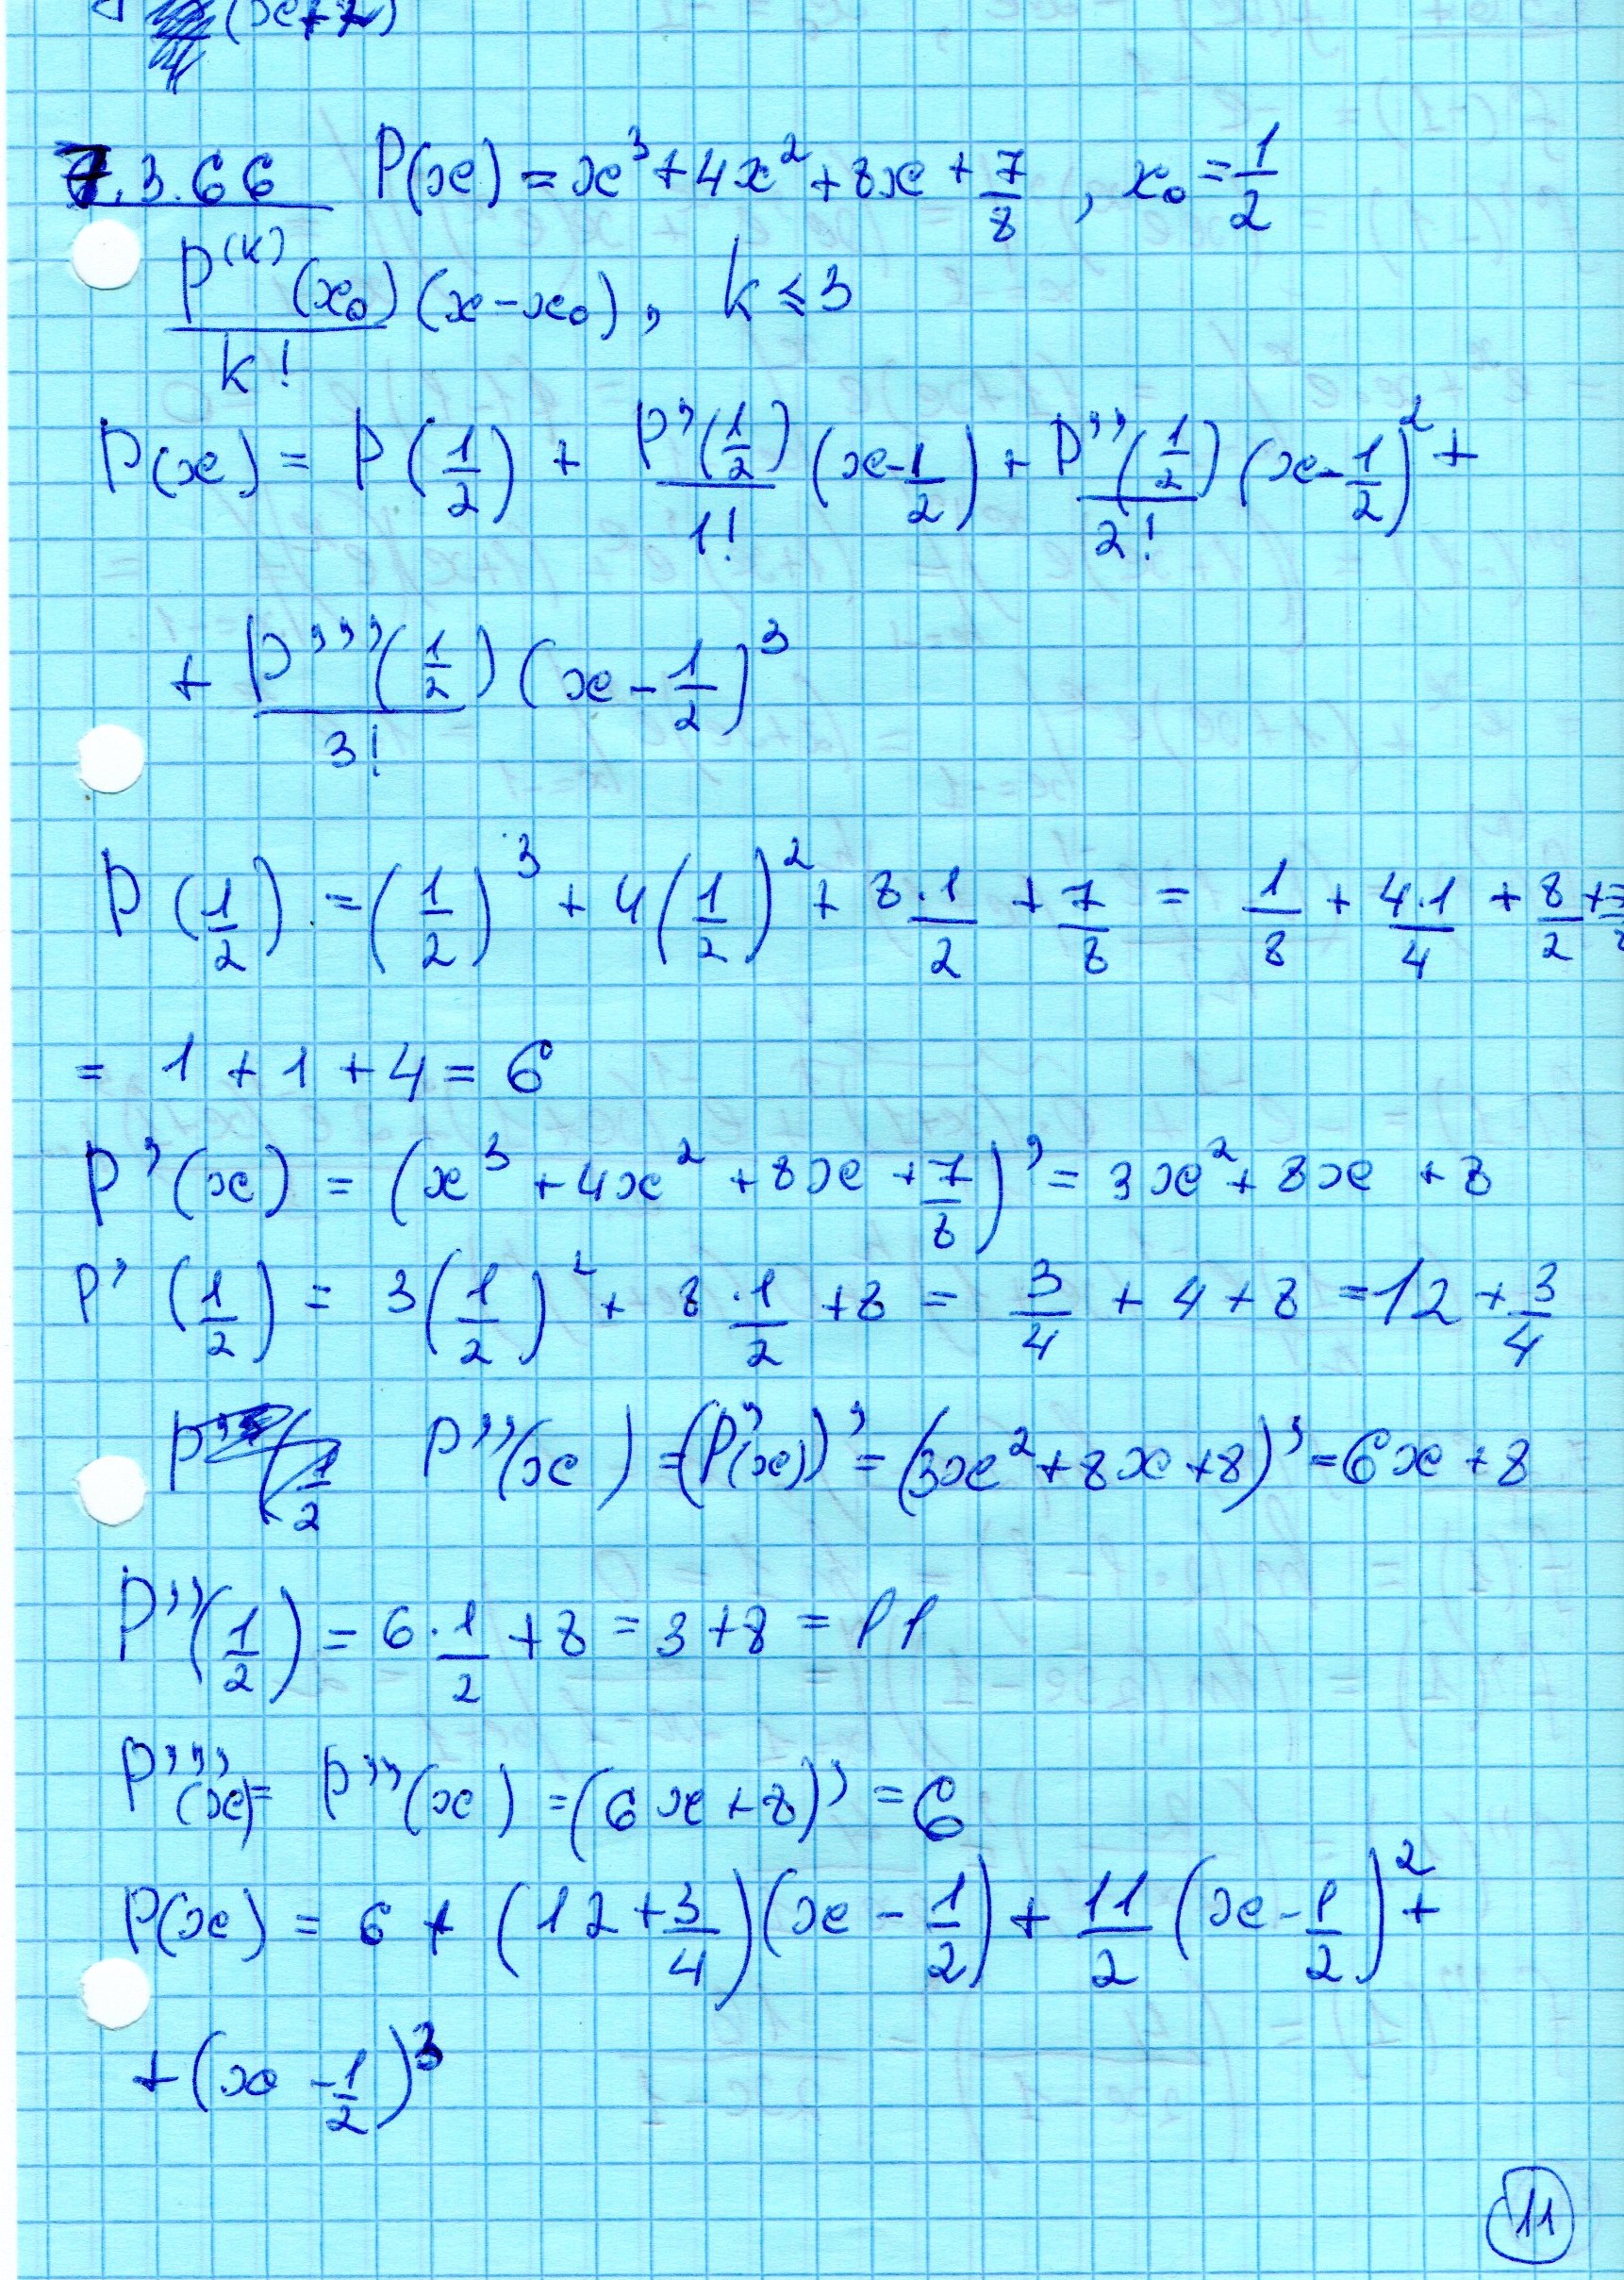 (x+2)
7.3.66 P(x) = x³ + 4x² + 8x + 7/8 , x₀ = 1/2
P⁽ᵏ⁾(x₀)/k! (x - x₀) , k ≤ 3
P(x) = P(1/2) + P'(1/2)/1! (x - 1/2) + P''(1/2)/2! (x - 1/2)² +
+ P'''(1/2)/3! (x - 1/2)³
P(1/2) = (1/2)³ + 4(1/2)² + 8·1/2 + 7/8 = 1/8 + 4·1/4 + 8/2 + 7/8
= 1 + 1 + 4 = 6
P'(x) = (x³ + 4x² + 8x + 7/8)' = 3x² + 8x + 8
P'(1/2) = 3(1/2)² + 8·1/2 + 8 = 3/4 + 4 + 8 = 12 + 3/4
P''(x) = (P'(x))' = (3x² + 8x + 8)' = 6x + 8
P''(1/2) = 6·1/2 + 8 = 3 + 8 = 11
P'''(x) = P'''(x) = (6x + 8)' = 6
P(x) = 6 + (12 + 3/4)(x - 1/2) + 11/2 (x - 1/2)² +
+ (x - 1/2)³
11